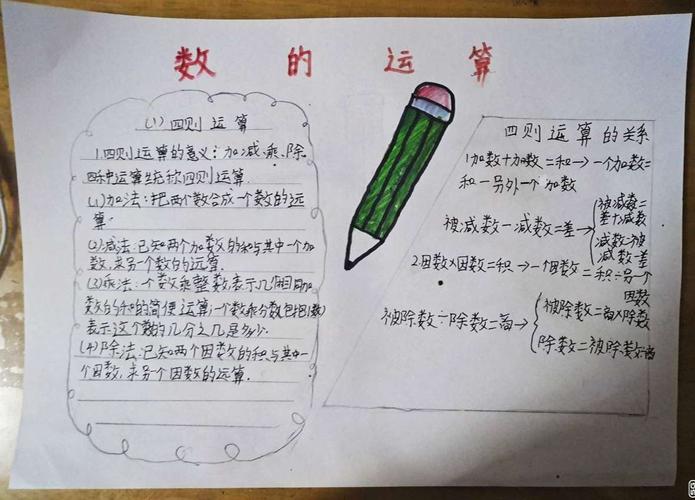 数的运算
(1)四则运算
1.四则运算的意义:加、减、乘、除
四种运算统称四则运算.
(1)加法:把两个数合成一个数的运
算.
(2)减法:已知两个加数的和与其中一个加
数,求另一个数的运算.
(3)乘法:一个数乘整数,表示几个相同加
数的和的简便运算;一个数乘分数包括(小数)
表示这个数的几分之几是多少.
(4)除法:已知两个因数的积与其中一
个因数,求另个因数的运算.
四则运算的关系
1加数+加数=和→一个加数=
和-另外一个加数
被减数-减数=差→{被减数=
差+减数
减数=被
减数-差
2因数×因数=积→一个因数=积÷另一个
因数
被除数÷除数=商→{被除数=商×除数
除数=被除数÷商